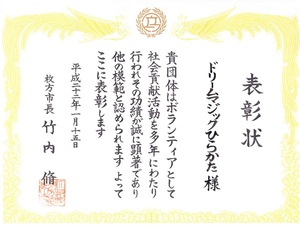 表彰状
ドリームマジックひらかた 様
貴団体はボランティアとして
社会貢献活動を多年にわたり
行われその功績が誠に顕著であり
他の模範と認められます よって
ここに表彰します
平成二十三年一月十五日
枚方市長 竹内 脩